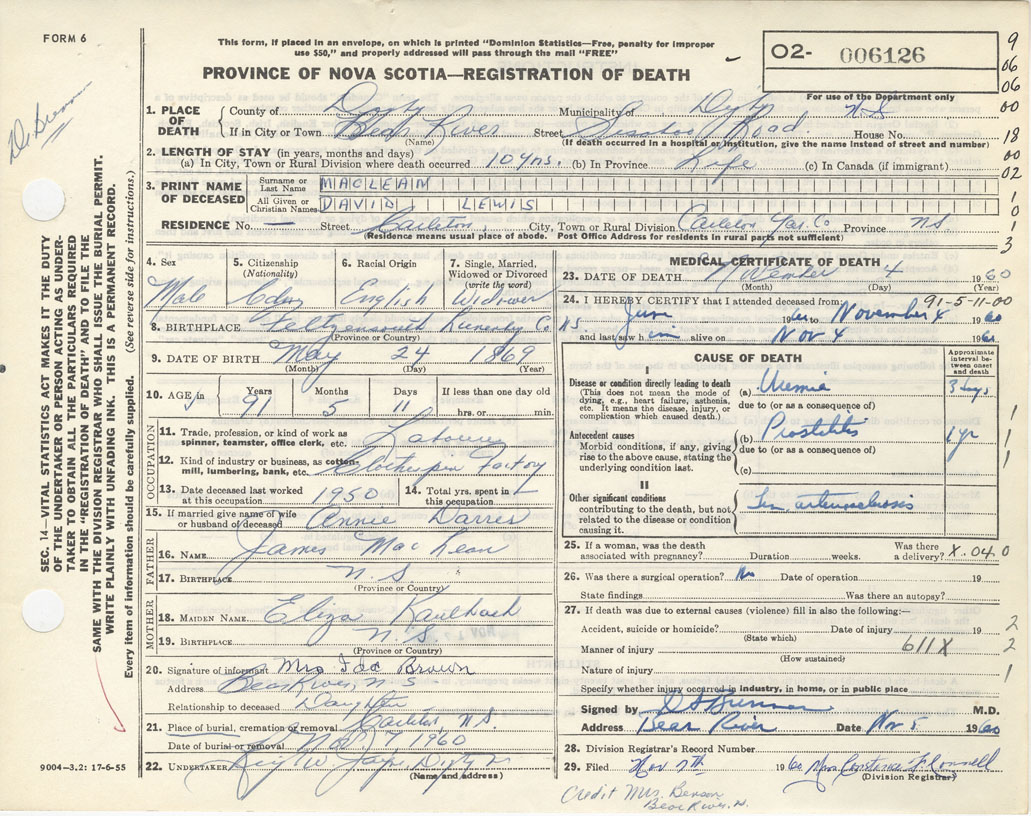 FORM 6
This form, if placed in an envelope, on which is printed "Dominion Statistics—Free, penalty for improper
use $50," and properly addressed will pass through the mail "FREE"
PROVINCE OF NOVA SCOTIA—REGISTRATION OF DEATH
O2- 006126
For use of the Department only
9
06
06
00
18
00
02
1
0
1
3
D. Brennan
SEC. 14—VITAL STATISTICS ACT MAKES IT THE DUTY
OF THE UNDERTAKER OR PERSON ACTING AS UNDER-
TAKER TO OBTAIN ALL THE PARTICULARS REQUIRED
IN THE "REGISTRATION OF DEATH" AND FILE THE
SAME WITH THE DIVISION REGISTRAR WHO SHALL ISSUE THE BURIAL PERMIT.
WRITE PLAINLY WITH UNFADING INK. THIS IS A PERMANENT RECORD.
Every item of information should be carefully supplied. (See reverse side for instructions.)
1. PLACE OF DEATH County of Digby Municipality of Digby N.S
If in City or Town Bear River Street Road House No.
(Name) (If death occurred in a hospital or institution, give the name instead of street and number)
2. LENGTH OF STAY (in years, months and days)
(a) In City, Town or Rural Division where death occurred 10 yrs, (b) In Province Life (c) In Canada (if immigrant)
3. PRINT NAME OF DECEASED Surname or Last Name MACLEAN
All Given or Christian Names DAVID LEWIS
RESIDENCE No. — Street Carleton, City, Town or Rural Division Carleton Yar. Co Province NS.
(Residence means usual place of abode. Post Office Address for residents in rural parts not sufficient)
4. Sex Male
5. Citizenship (Nationality) Cdn
6. Racial Origin English
7. Single, Married, Widowed or Divorced (write the word) Widower
8. BIRTHPLACE Feltzensouth Lunenburg Co. N.S.
(Province or Country)
9. DATE OF BIRTH May 24 1869
(Month) (Day) (Year)
10. AGE Years 91 Months 5 Days 11 If less than one day old hrs. or min.
OCCUPATION
11. Trade, profession, or kind of work as
spinner, teamster, office clerk, etc. Labourer
12. Kind of industry or business, as cotton-
mill, lumbering, bank, etc. Clothespin Factory
13. Date deceased last worked at this occupation 1950
14. Total yrs. spent in this occupation
15. If married give name of wife or husband of deceased Annie Darres
FATHER
16. NAME James MacLean
17. BIRTHPLACE N.S
(Province or Country)
MOTHER
18. MAIDEN NAME Eliza Kaulback
19. BIRTHPLACE N.S.
(Province or Country)
20. Signature of informant Mrs Ida Brown
Address Bear River, N.S
Relationship to deceased Daughter
21. Place of burial, cremation or removal Carleton N.S.
Date of burial or removal Nov 7 1960
22. UNDERTAKER
(Name and address)
9004—3.2: 17-6-55
MEDICAL CERTIFICATE OF DEATH
23. DATE OF DEATH November 4 1960
(Month) (Day) (Year)
91-5-11-00
24. I HEREBY CERTIFY that I attended deceased from:
June 1960 to November 4 1960
and last saw him alive on Nov 4 1960
CAUSE OF DEATH
Approximate interval between onset and death
I
Disease or condition directly leading to death
(This does not mean the mode of
dying, e.g., heart failure, asthenia,
etc. It means the disease, injury, or
complication which caused death.)
(a) Uremia 3 days
due to (or as a consequence of)
Antecedent causes
Morbid conditions, if any, giving
rise to the above cause, stating the
underlying condition last.
(b) Prostatitis 1 yr
due to (or as a consequence of)
(c)
II
Other significant conditions
contributing to the death, but not
related to the disease or condition
causing it.
arteriosclerosis
1
1
1
25. If a woman, was the death associated with pregnancy? Duration weeks. Was there a delivery? X.04.0
26. Was there a surgical operation? No Date of operation 19
State findings Was there an autopsy?
27. If death was due to external causes (violence) fill in also the following:—
Accident, suicide or homicide? Date of injury 19 2
(State which)
Manner of injury 611X 2
(How sustained)
Nature of injury 1
Specify whether injury occurred in industry, in home, or in public place
Signed by M.D.
Address Bear River Date Nov 5 1960
28. Division Registrar's Record Number
29. Filed Nov 7th 1960 Mrs. Constance F. Connell
(Division Registrar)
Credit Mrs. Benson
Bear River, N.